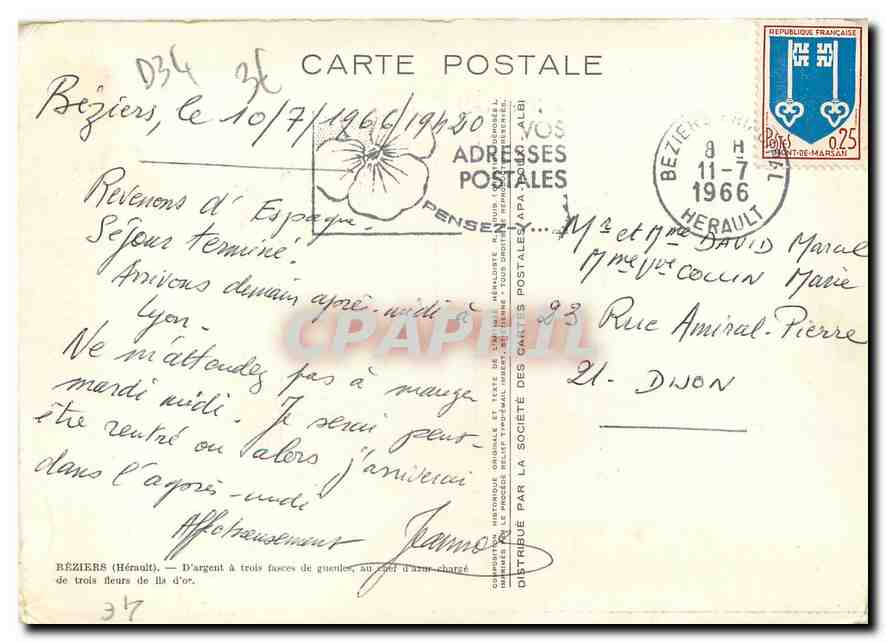 D34 3€
CARTE POSTALE
REPUBLIQUE FRANÇAISE
POSTES 0,25
MONT-DE-MARSAN
Béziers, le 10/7/1966/19h20
VOS
ADRESSES
POSTALES
PENSEZ-Y...
BEZIERS
8 H
11-7
1966
HERAULT
Revenons d'Espagne.
Séjour terminé.
Arrivons demain après-midi à
Lyon.
Ne m'attendez pas à manger
mardi midi. Je serai peut-
être rentré ou alors j'arriverai
dans l'après-midi
Affectueusement Jeannot
Mr et Mme DAVID Marcel
Mme Vve COLLIN Marie
23 Rue Amiral-Pierre
21- DIJON
CPAPHIL
COMPOSITION HISTORIQUE ORIGINALE ET TEXTE DE L'ARTISTE HÉRALDISTE R. LOUIS
IMPRIMÉS PAR LE PROCÉDÉ RELIEF TYPO-ÉMAIL IMBERT, ST-ÉTIENNE - TOUS DROITS DE REPRODUCTION RÉSERVÉS.
DISTRIBUÉ PAR LA SOCIÉTÉ DES CARTES POSTALES APA-POUX - ALBI
BÉZIERS (Hérault). — D'argent à trois fasces de gueules, au chef d'azur chargé
de trois fleurs de lis d'or.
34